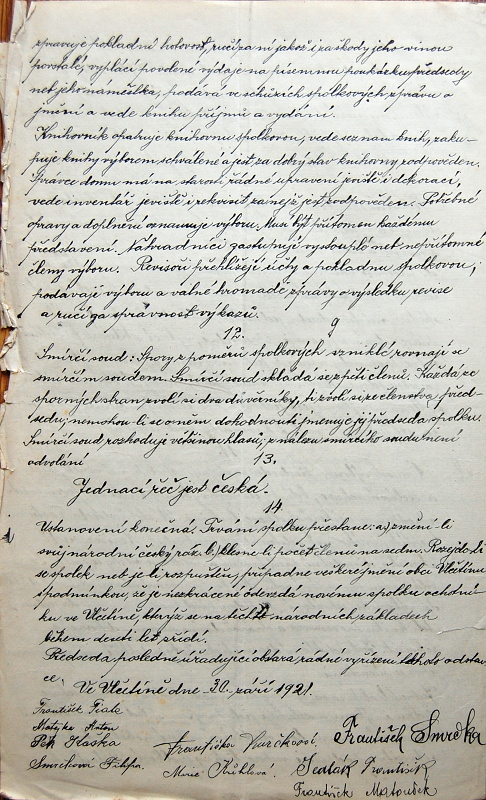 spravuje pokladní hotovost, ručí za ni jakož i za škody jeho vinou
povstalé, vyplácí povolené výdaje na písemnou poukázku předsedy
neb jeho náměstka, podává ve schůzích spolkových zprávu o
jmění a vede knihu příjmů a vydání.
Knihovník opatruje knihovnu spolkovou, vede seznam knih, zaku-
puje knihy výborem schválené a jest za dobrý stav knihovny zodpověden.
Správce domu má na starosti řádné upravení jeviště i dekorací,
vede inventář jeviště i rekvisit za nějž jest zodpověden. Potřebné
opravy a doplnění oznamuje výboru. Musí být přítomen každému
představení. Náhradníci zastupují vystouplé neb nepřítomné
členy výboru. Revisoři přehlížejí účty a pokladnu spolkovou,
podávají výboru a valné hromadě zprávy o výsledku revise
a ručí za správnost výkazů.
12. 9
Smírčí soud: Spory z poměrů spolkových vzniklé rovnají se
smírčím soudem. Smírčí soud skládá se z pěti členů. Každá ze
sporných stran zvolí si dva důvěrníky, ti zvolí si ze členstva před-
sedu; nemohou-li se o něm dohodnouti jmenuje jej předseda spolku.
Smírčí soud rozhoduje většinou hlasů; z nálezu smírčího soudu není
odvolání
13.
Jednací řeč jest česká.
14
Ustanovení konečná. Trvání spolku přestane: a) změní-li
svůj národní český ráz. b.) klesne-li počet členů na sedm. Rozejde-li
se spolek neb je-li rozpuštěn, připadne veškeré jmění obci Včelínu
s podmínkou, že je nezkráceně odevzdá novému spolku ochotni-
ku ve Včelíně, kterýž se na těchtž národních základech
během deseti let zřídí.
Předseda posledně úřadující obstará řádné vyřízení tohoto odstav-
ce.
Ve Včelíně dne 30. září 1921.
František Fiala
Matějka Anton
Petr Kaska
Smrčková Filipa.
Františka Vurčková
Marie Krůhlová.
František Smrčka
Sedlák František
František Matoušek